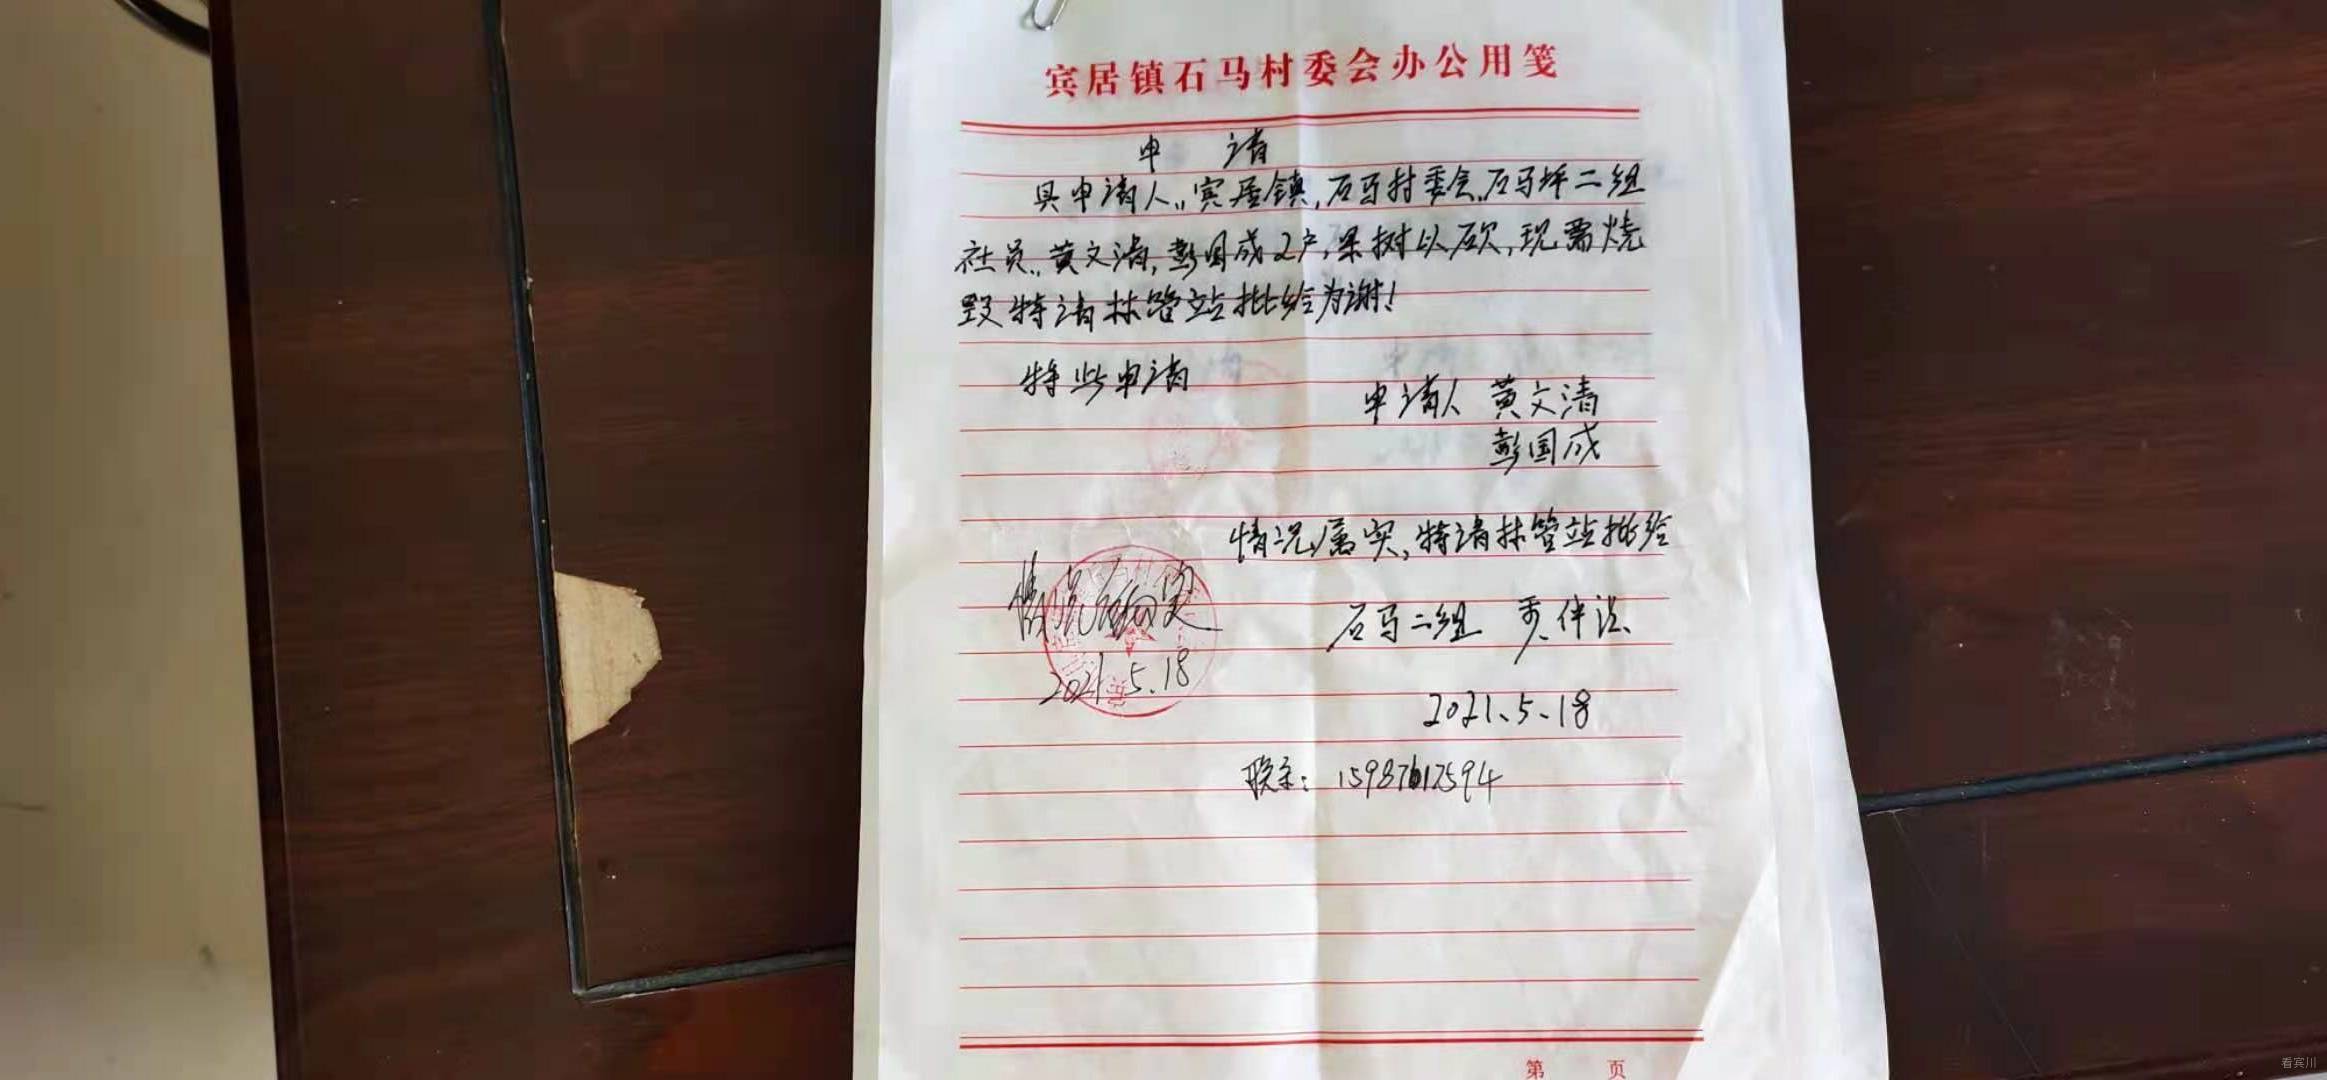 宾居镇石马村委会办公用笺
申 请
具申请人,宾居镇,石马村委会,石马坪二组
社员,黄文清,彭国成2户,果树以砍,现需烧
毁特请林管站批给为谢!
特此申请
申请人 黄文清
彭国成
情况属实,特请林管站批给
情况属实
石马二组
2021.5.18
2021.5.18
联系: 15987612594
第 页
看宾川